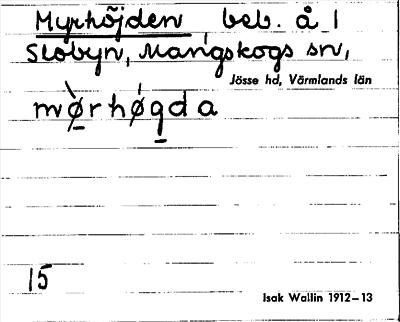 Myrhöjden, beb. å 1
Slobyn, Mangskogs sn,
Jösse hd, Värmlands län
mø̀rhøgda
15
Isak Wallin 1912–13